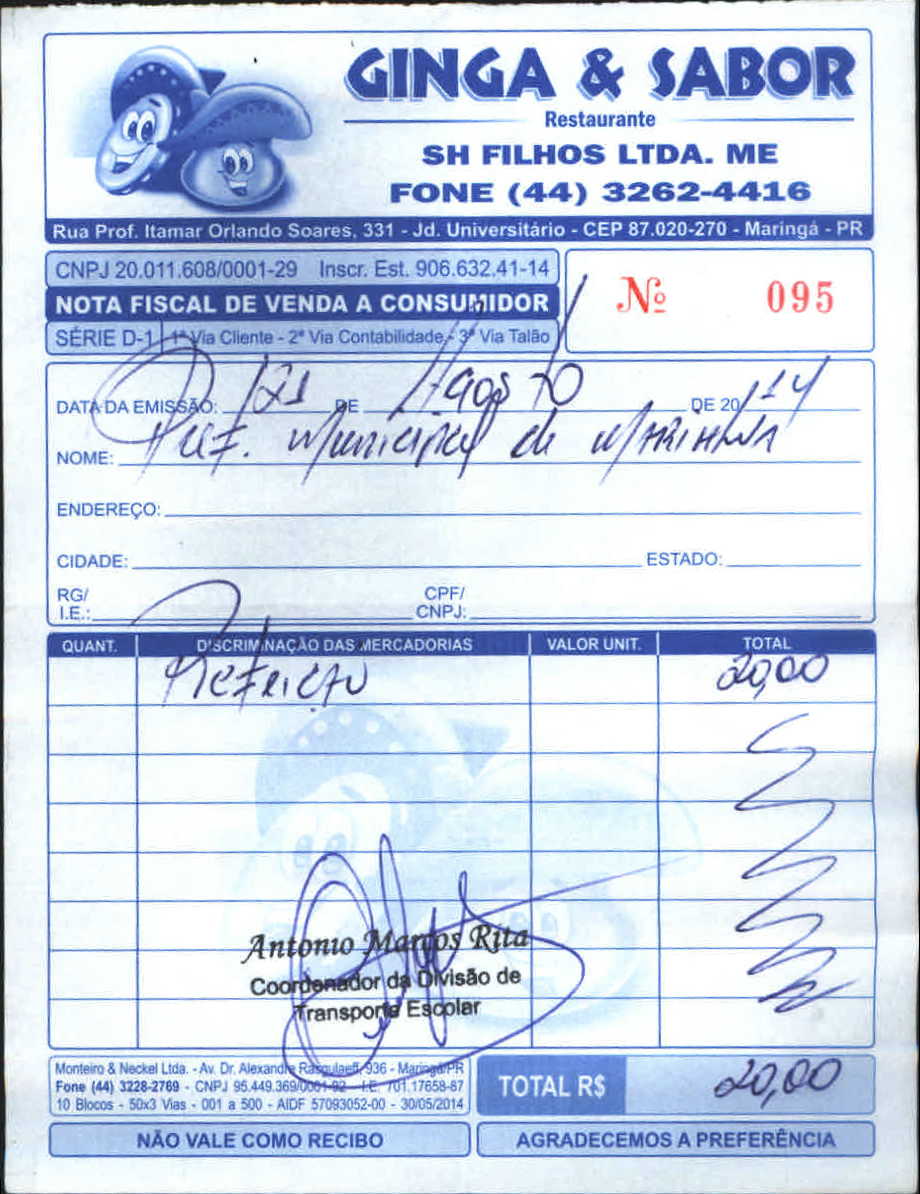 GINGA & SABOR
Restaurante
SH FILHOS LTDA. ME
FONE (44) 3262-4416
Rua Prof. Itamar Orlando Soares, 331 - Jd. Universitário - CEP 87.020-270 - Maringá - PR
CNPJ 20.011.608/0001-29 Inscr. Est. 906.632.41-14
NOTA FISCAL DE VENDA A CONSUMIDOR
SÉRIE D-1 1ª Via Cliente - 2ª Via Contabilidade - 3ª Via Talão
Nº 095
DATA DA EMISSÃO: 21 DE Agosto DE 2014
NOME: Pref. Municipal de
ENDEREÇO:
CIDADE: ESTADO:
RG/ CPF/
I.E.: CNPJ:
QUANT. DISCRIMINAÇÃO DAS MERCADORIAS VALOR UNIT. TOTAL
Refeição 20,00
Antonio Marcos Rita
Coordenador da Divisão de
Transporte Escolar
Monteiro & Neckel Ltda. - Av. Dr. Alexandre Rasgulaeff, 936 - Maringá/PR
Fone (44) 3228-2769 - CNPJ 95.449.369/0001-92 - I.E. 701.17658-87
10 Blocos - 50x3 Vias - 001 a 500 - AIDF 57093052-00 - 30/05/2014
TOTAL R$ 20,00
NÃO VALE COMO RECIBO
AGRADECEMOS A PREFERÊNCIA